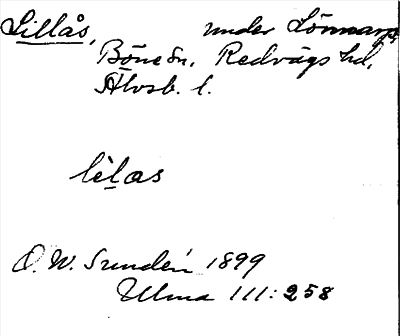 Lillås, under Lönnarp,
Böne sn, Redvägs hd,
Älvsb. l.
lèlas
O.W. Sundén 1899
Ulma 111:258